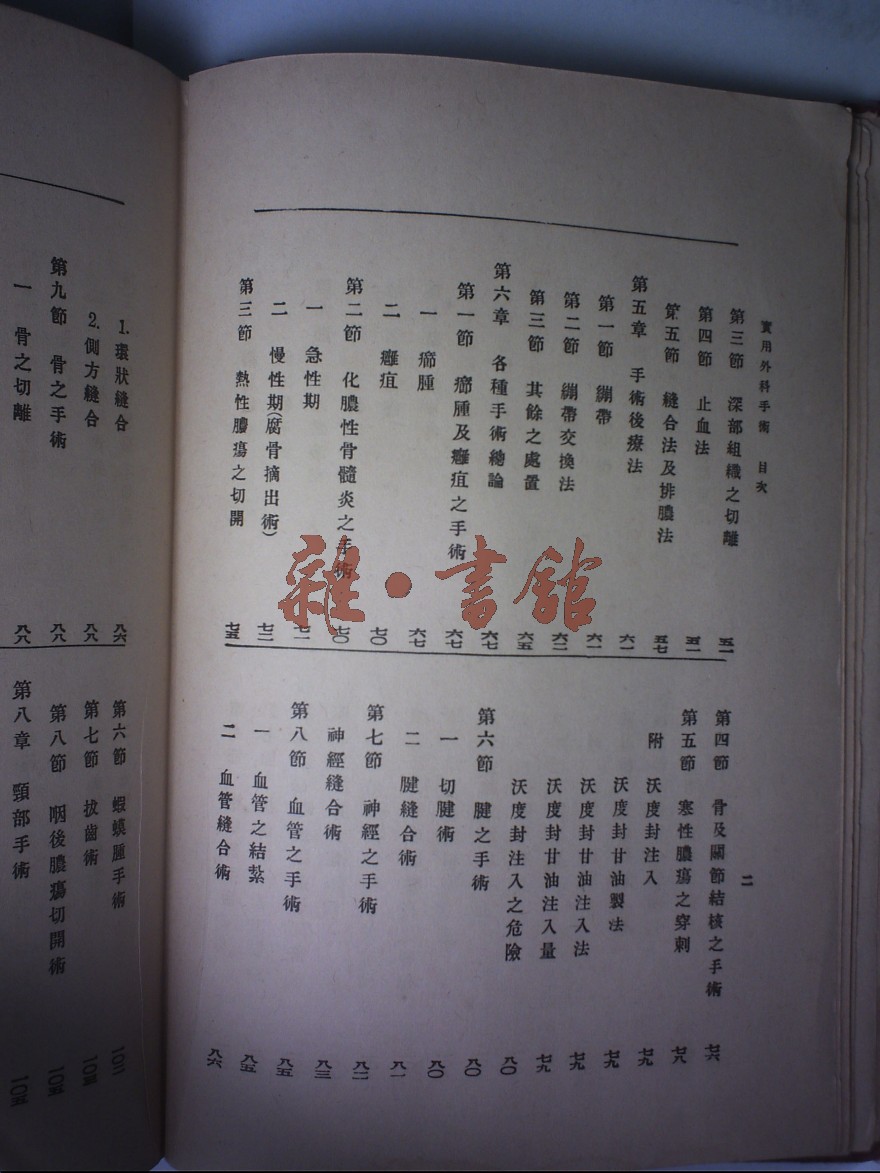 實用外科手術 目次
第三節 深部組織之切離 五一
第四節 止血法 五二
第五節 縫合法及排膿法 五七
第五章 手術後療法 六一
第一節 繃帶 六一
第二節 繃帶交換法 六二
第三節 其餘之處置 六五
第六章 各種手術總論 六七
第一節 癤腫及癰疽之手術 六七
一 癤腫 六七
二 癰疽 七〇
第二節 化膿性骨髓炎之手術 七〇
一 急性期 七一
二 慢性期(腐骨摘出術) 七二
第三節 熱性膿瘍之切開 七五
二
第四節 骨及關節結核之手術 七六
第五節 寒性膿瘍之穿刺 七八
附 沃度封注入 七九
沃度封甘油製法 七九
沃度封甘油注入法 七九
沃度封甘油注入量 七九
沃度封注入之危險 八〇
第六節 腱之手術 八〇
一 切腱術 八〇
二 腱縫合術 八一
第七節 神經之手術 八二
神經縫合術 八三
第八節 血管之手術 八五
一 血管之結紮 八五
二 血管縫合術 八六
1. 環狀縫合 八六
2. 側方縫合 八八
第九節 骨之手術 八八
一 骨之切離 八八
第六節 蝦蟆腫手術 一〇三
第七節 拔齒術 一〇四
第八節 咽後膿瘍切開術 一〇四
第八章 頸部手術 一〇五
雜·書館